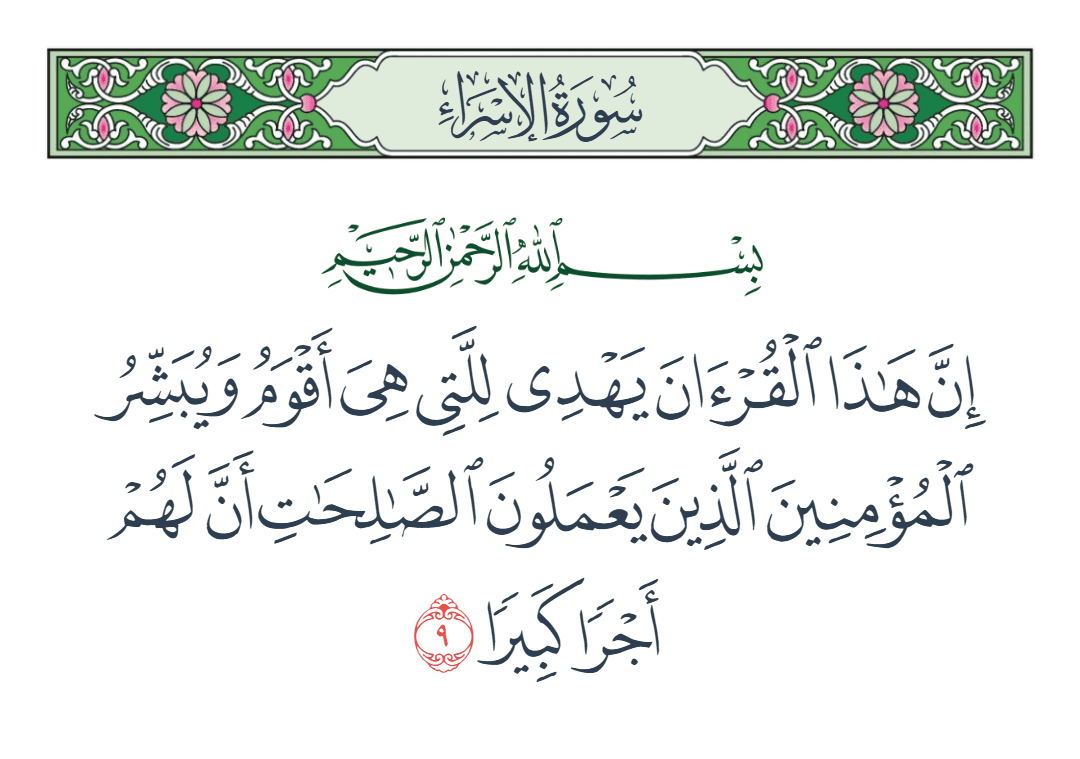 سُورَةُ الإِسْرَاءِ
بِسْمِ ٱللَّهِ ٱلرَّحْمَٰنِ ٱلرَّحِيمِ
إِنَّ هَٰذَا ٱلْقُرْءَانَ يَهْدِى لِلَّتِى هِىَ أَقْوَمُ وَيُبَشِّرُ
ٱلْمُؤْمِنِينَ ٱلَّذِينَ يَعْمَلُونَ ٱلصَّٰلِحَٰتِ أَنَّ لَهُمْ
أَجْرَا كَبِيرَا ٩